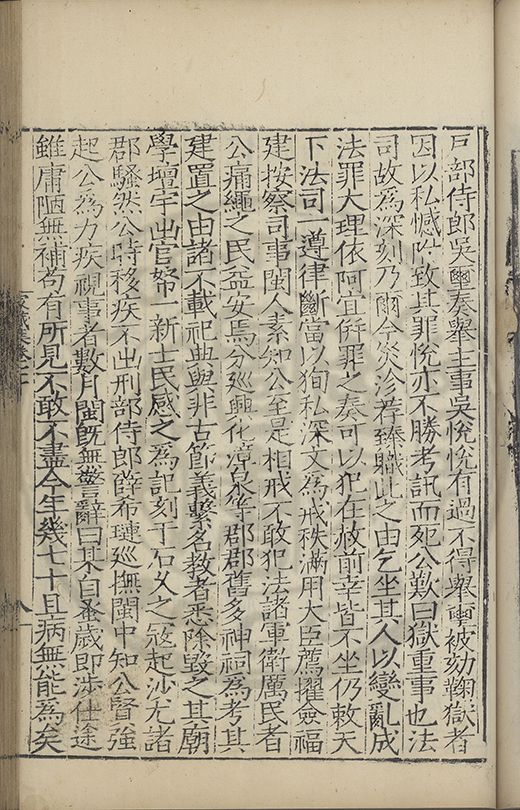 戶部侍郎吳璽奏舉主事吳悅悅有過不得舉璽被劾鞠獄者
因以私憾附致其罪悅亦不勝考訊而死公歎曰獄重事也法
司故爲深刻乃爾今災沴荐臻職此之由乞坐其人以變亂成
法罪大理依阿宜併罪之奏可以犯在赦前幸皆不坐仍敕天
下法司一遵律斷當以狥私深文爲戒秩滿用大臣薦擢僉福
建按察司事閩人素知公至是相戒不敢犯法諸軍衛厲民者
公痛繩之民益安焉分廵興化漳泉等郡郡舊多神祠爲考其
建置之由諸不載祀典與非古節義繫名教者悉除毀之其廟
學壇宇出官帑一新士民感之爲記刻于石乂之寇起沙尤諸
郡騷然公時移疾不出刑部侍郎薛希璉廵撫閩中知公賢強
起公爲力疾視事者數月閩旣無警辭曰某自蚤歲即涉仕途
雖庸陋無補苟有所見不敢不盡今年幾七十且病無能爲矣